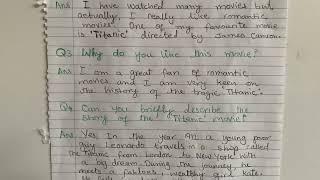 Ans I have watched many movies but,
actually, I really like romantic
movies. One of my favourite movie
is "Titanic" directed by James
Q3 Why do you like this movie?
Ans I am a great fan of romantic
movies and I am very keen on
the history of the tragic Titanic".
Q4 Can you briefly describe the
story of the "Titanic" movie?
Ans Yes. In the year a young poor
guy Leonardo travels in a called
the Titanic from London to New York with
big dream. During the journey he
meets a wealthy girl Kate.